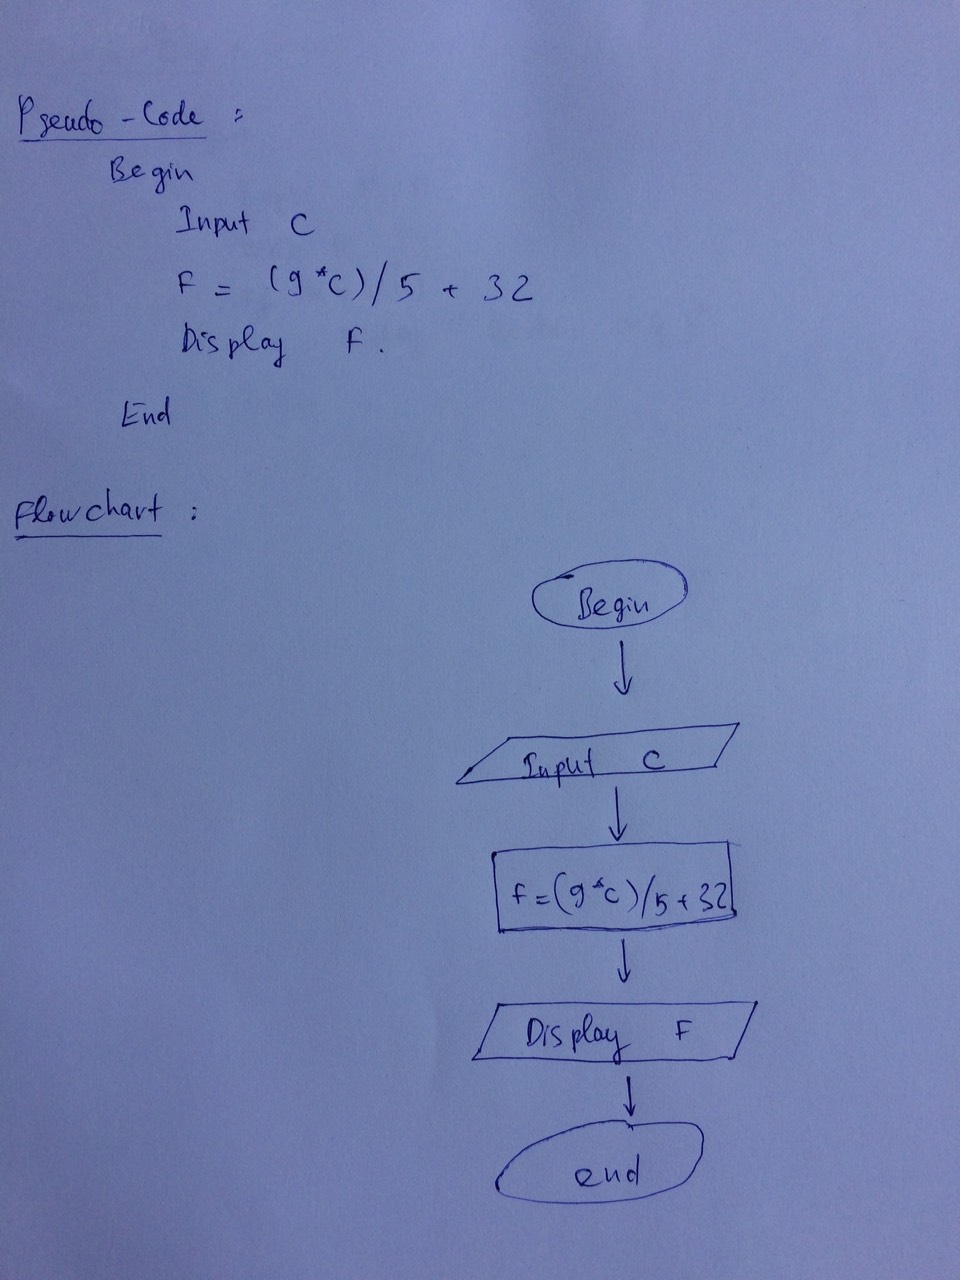 Pseudo-Code :
Begin
Input C
F = (9*C)/5 + 32
Display F.
End
Flowchart :
Begin
Input C
F=(9*C)/5+32
Display F
end